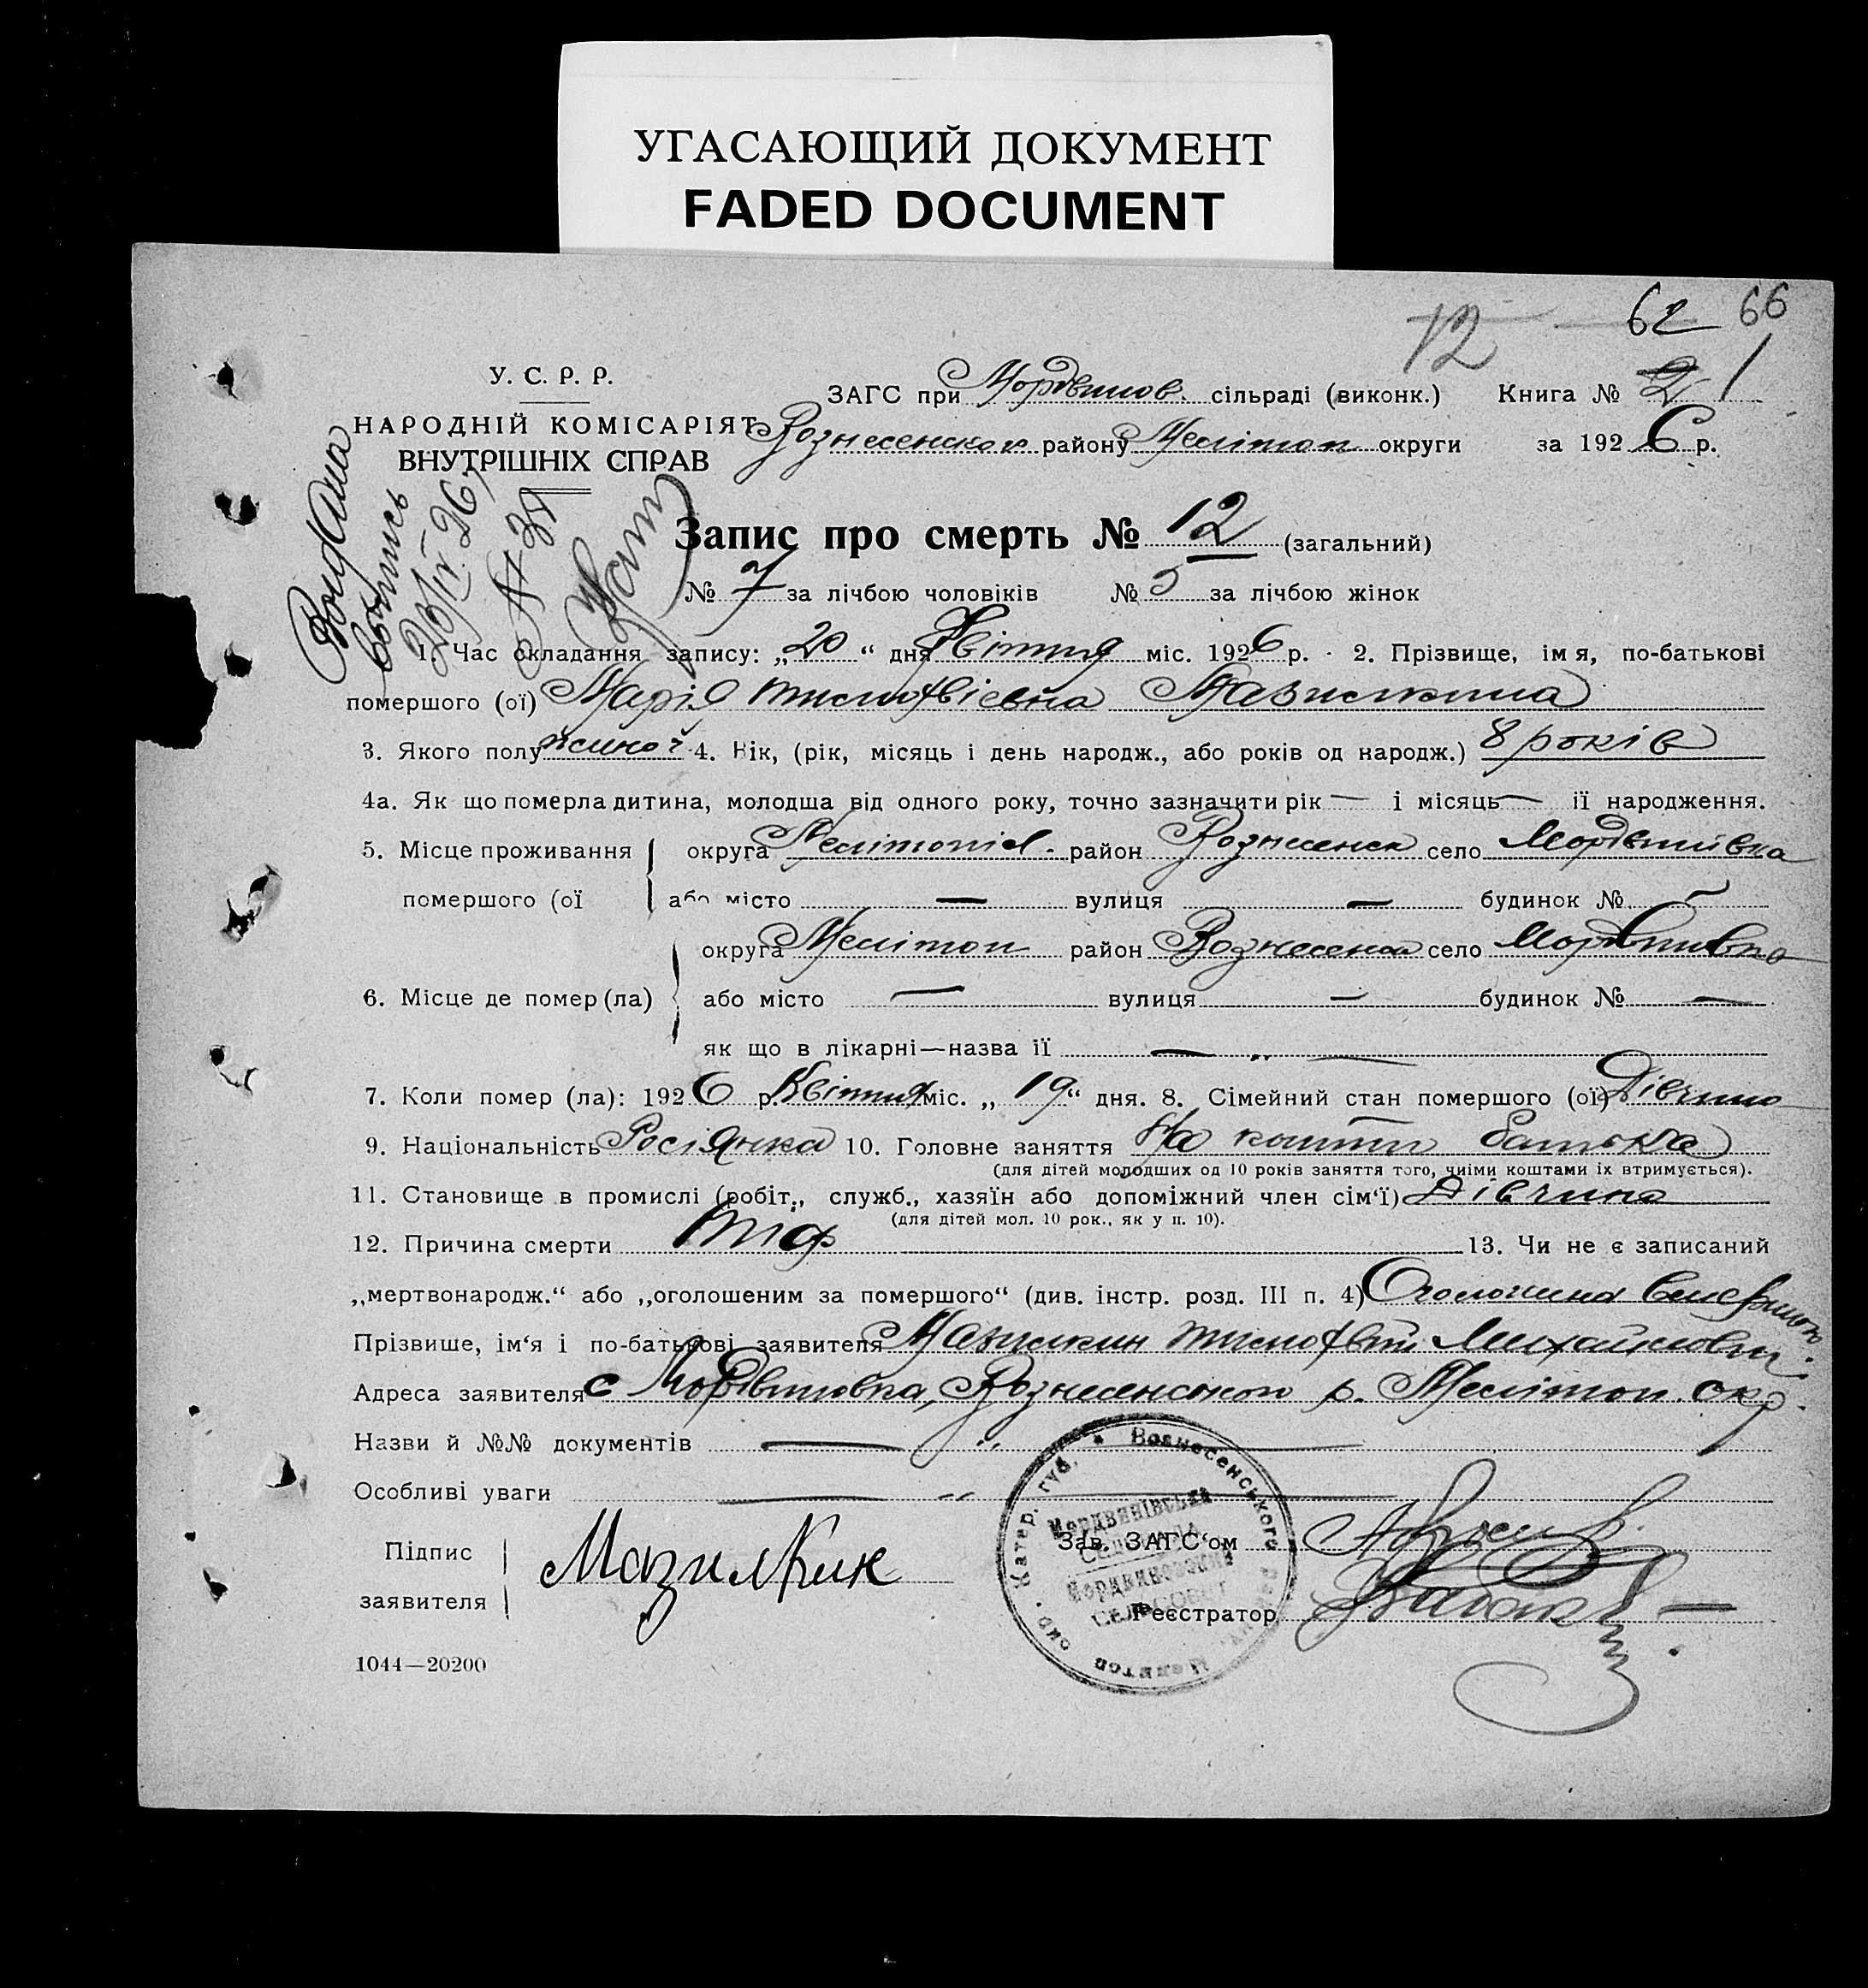 УГАСАЮЩИЙ ДОКУМЕНТ
FADED DOCUMENT
12 62 66
У. С. Р. Р.
НАРОДНІЙ КОМІСАРІЯТ
ВНУТРІШНІХ СПРАВ
ЗАГС при Мордвинов. сільраді (виконк.) Книга № 2 1
Вознесенског району Мелітоп округи за 1926 р.
Выдана
выпись
20/IV 26
№ 39
Запис про смерть № 12 (загальний)
№ 7 за лічбою чоловіків № 5 за лічбою жінок
1. Час складання запису: „20“ дня Квітня міс. 1926 р. 2. Прізвище, імя, по-батькові
помершого (ої) Марія Тимофвієвна Мазилкина
3. Якого полу жіночі 4. Вік, (рік, місяць і день народж., або років од народж.) 8 років
4а. Як що померла дитина, молодша від одного року, точно зазначити рік — і місяць — її народження.
5. Місце проживання округа Мелітопіл. район Вознесенск село Мордвинівка
помершого (ої або місто — вулиця — будинок №
округа Мелітоп район Вознесенск село Мордвинівка
6. Місце де помер (ла) або місто — вулиця — будинок № —
як що в лікарні—назва її — „ —
7. Коли помер (ла): 1926 р. Квітня міс. „19“ дня. 8. Сімейний стан помершого (ої) Дівчина
9. Національність Росіянка 10. Головне заняття На кошти батька
(для дітей молодших од 10 років заняття того, чиїми коштами їх втримується).
11. Становище в промислі (робіт., служб., хазяїн або допоміжний член сім‘ї) Дівчина
(для дітей мол. 10 рок., як у п. 10).
12. Причина смерти Тіф 13. Чи не є записаний
„мертвонародж.“ або „оголошеним за помершого“ (див. інстр. розд. III п. 4) Оголошена
Прізвище, ім‘я і по-батькові заявителя Мазилкин Тимофвій Михайлович
Адреса заявителя с Мордвиновка, Вознесенског р. Мелітоп. окр.
Назви й №№ документів — „ —
Особливі уваги — „ —
Підпис
заявителя
Мазилкин
Зав. ЗАГС‘ом
Реєстратор
Вознесенського
Катер. губ.
Мелитоп окр.
Мордвинівська
Сельрада
Мордвиновский
СЕЛЬСОВЕТ
1044—20200